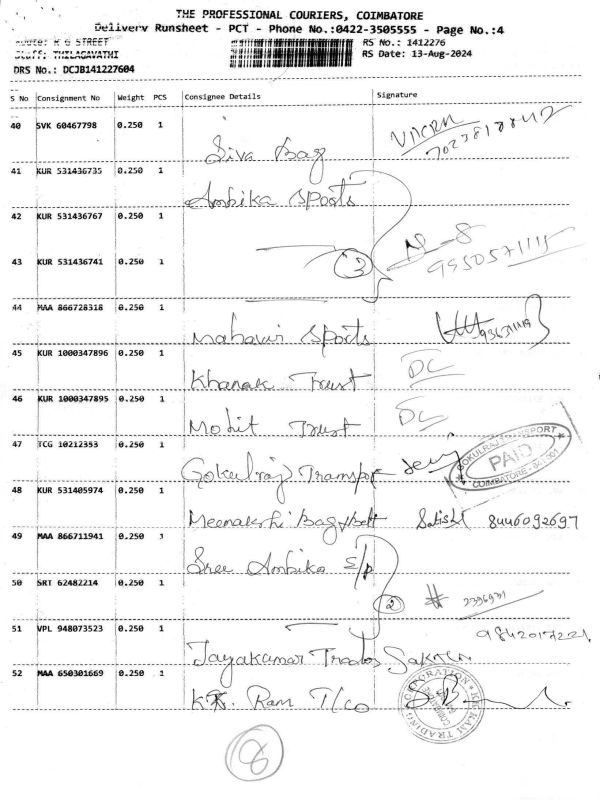 THE PROFESSIONAL COURIERS, COIMBATORE
Delivery Runsheet - PCT - Phone No.:0422-3505555 - Page No.:4
Route: K G STREET
RS No.: 1412276
Staff: THILAGAVATHI
RS Date: 13-Aug-2024
DRS No.: DCJB141227604
S No Consignment No Weight PCS Consignee Details Signature
40 SVK 60467798 0.250 1 Siva Bag
41 KUR 531436735 0.250 1 Ambika Sports
42 KUR 531436767 0.250 1
43 KUR 531436741 0.250 1 3 9550571115
44 MAA 866728318 0.250 1 Mahavir Sports
45 KUR 1000347896 0.250 1 Khanak Trust DC
46 KUR 1000347895 0.250 1 Mohit Trust DC
47 TCG 10212353 0.250 1 Gokulraj Transpor
GOKULRAJ TRANSPORT
PAID
COIMBATORE
48 KUR 531405974 0.250 1 Meenakshi Bag & Belt Satish 8446092697
49 MAA 866711941 0.250 1 Sree Ambika S/p
50 SRT 62482214 0.250 1 2 # 2396931
51 VPL 948073523 0.250 1 Jayakumar Trados
52 MAA 650301669 0.250 1 K.R. Ram T/co
8